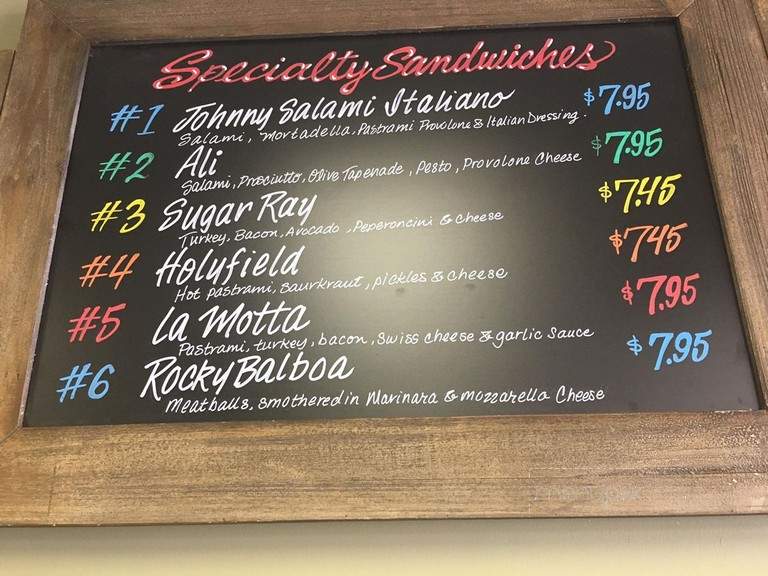 Specialty Sandwiches
#1 Johnny Salami Italiano $7.95
Salami, Mortadella, Pastrami Provolone & Italian Dressing.
#2 Ali $7.95
Salami, Prosciutto, Olive Tapenade, Pesto, Provolone Cheese
#3 Sugar Ray $7.45
Turkey, Bacon, Avocado, Peperoncini & cheese
#4 Holyfield $745
Hot pastrami, saurkraut, pickles & cheese
#5 La Motta $7.95
Pastrami, turkey, bacon, Swiss cheese & garlic sauce
#6 Rocky Balboa $7.95
Meatballs, smothered in Marinara & mozzarella Cheese